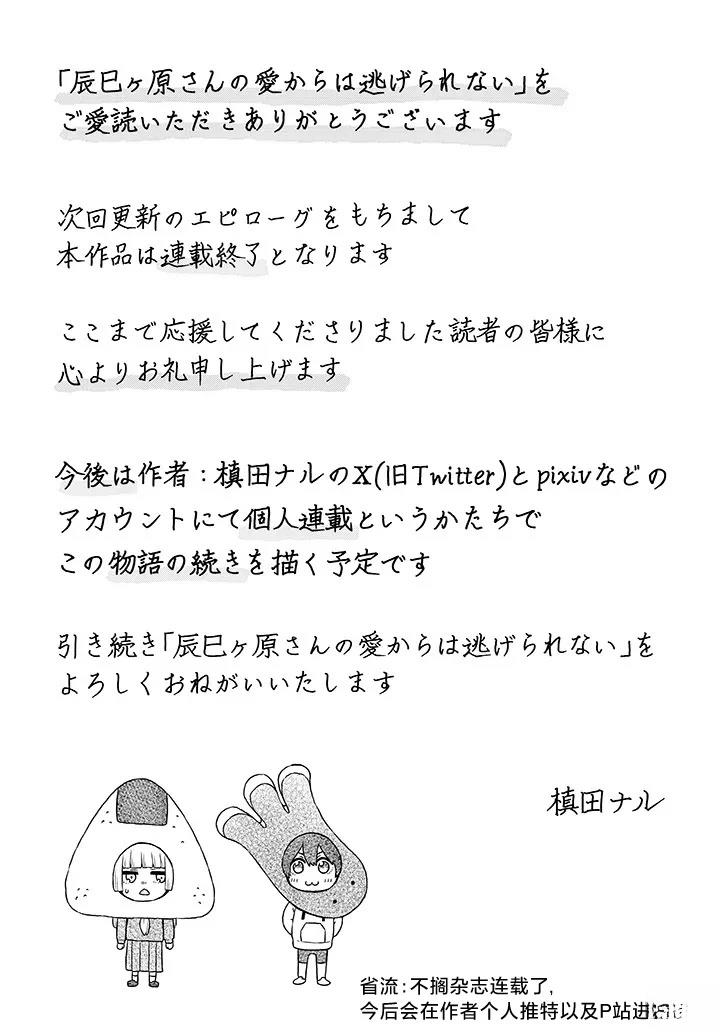 「辰巳ヶ原さんの愛からは逃げられない」を
ご愛読いただきありがとうございます
次回更新のエピローグをもちまして
本作品は連載終了となります
ここまで応援してくださりました読者の皆様に
心よりお礼申し上げます
今後は作者：槙田ナルのX(旧Twitter)とpixivなどの
アカウントにて個人連載というかたちで
この物語の続きを描く予定です
引き続き「辰巳ヶ原さんの愛からは逃げられない」を
よろしくおねがいいたします
槙田ナル
省流：不搁杂志连载了，
今后会在作者个人推特以及P站进